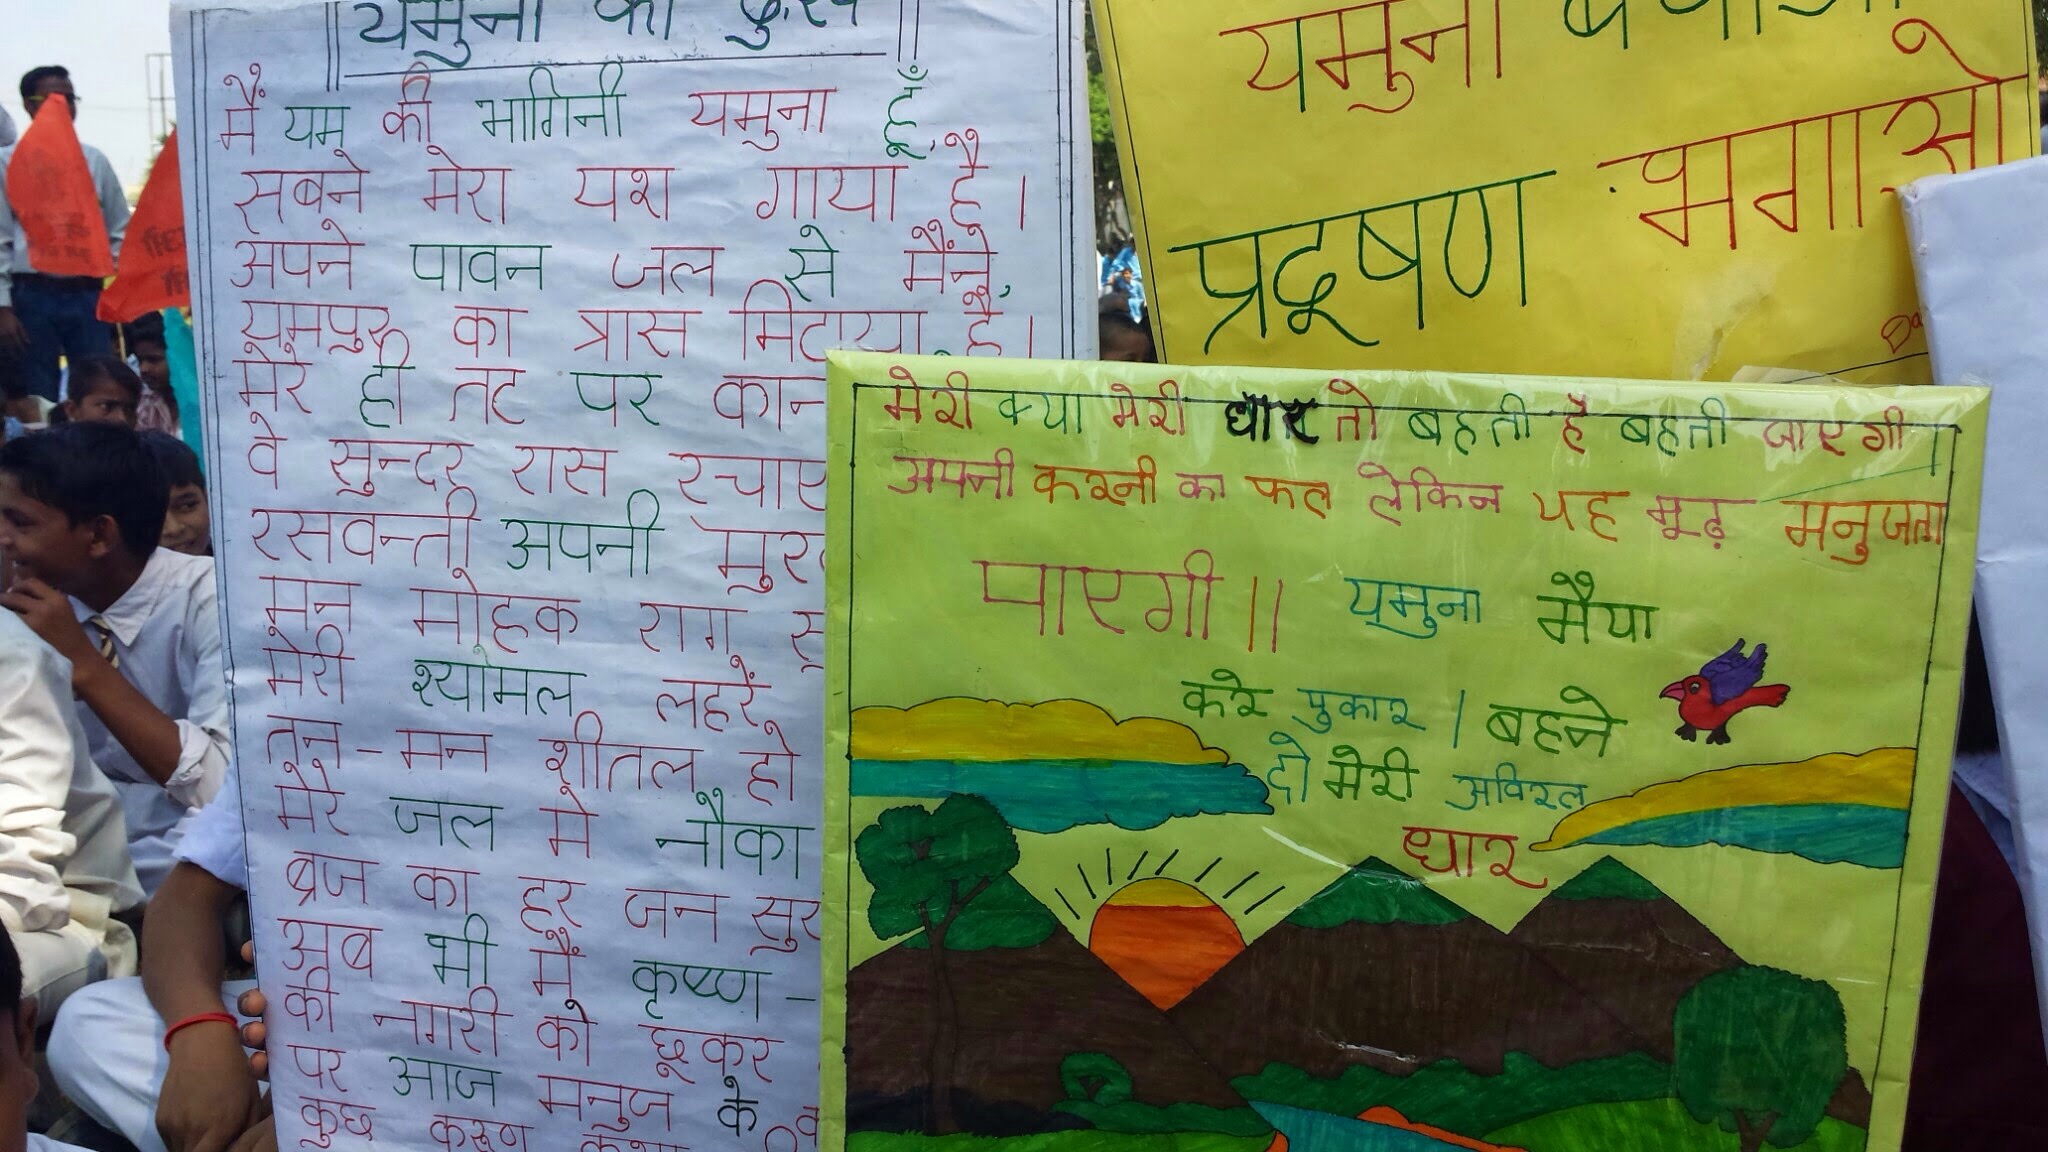 यमुना का दुःख
मैं यम की भागिनी यमुना हूँ,
सबने मेरा यश गाया है।
अपने पावन जल से मैंने,
यमपुर का त्रास मिटाया है।
मेरे ही तट पर
वे सुन्दर रास
रसवन्ती अपनी
मन मोहक राग
मेरी श्यामल लहरें
तन-मन शीतल हो
मेरे जल मे नौका
ब्रज का हर जन
अब भी मैं कृष्ण-
की नगरी को छूकर
पर आज मनुज के
कुछ करूण कथा
यमुना बचाओ
प्रदूषण भगाओ
मेरी क्या मेरी धार तो बहती है बहती जाएगी।
अपनी करनी का फल लेकिन यह मूढ़ मनुजता
पाएगी॥ यमुना मैया
करे पुकार। बहने
दो मेरी अविरल
धार